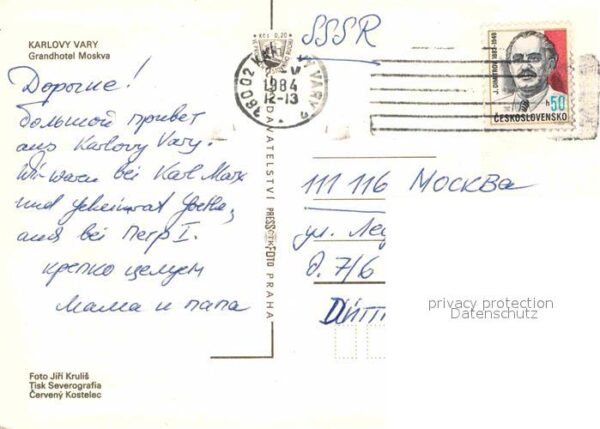 KARLOVY VARY
Grandhotel Moskva
Дорогие!
большой привет
aus Karlovy Vary.
Wir waren bei Karl Marx
und Geheimrat Goethe,
und bei Петр I.
крепко целуем
мама и папа
Foto Jiří Kruliš
Tisk Severografia
Červený Kostelec
PRESSFOTO PRAHA
Kčs 0,20
360 02 KARLOVY VARY 2
1984
12-13
SSSR
J. DIMITROV 1882-1949
50
ČESKOSLOVENSKO
111 116 МОСКВА
ул.
д. 7/6
privacy protection
Datenschutz